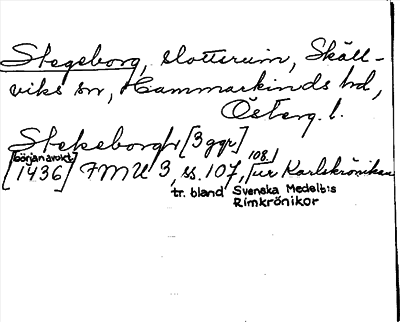 Stegeborg, slottsruin, Skäll-
viks sn, Hammarkinds hd,
Österg. l.
Stekeborgh [3 ggr]
[början av okt.
1436] FMU 3, ss. 107, 108, ur Karlskrönikan
tr. bland Svenska Medelt:s
Rimkrönikor